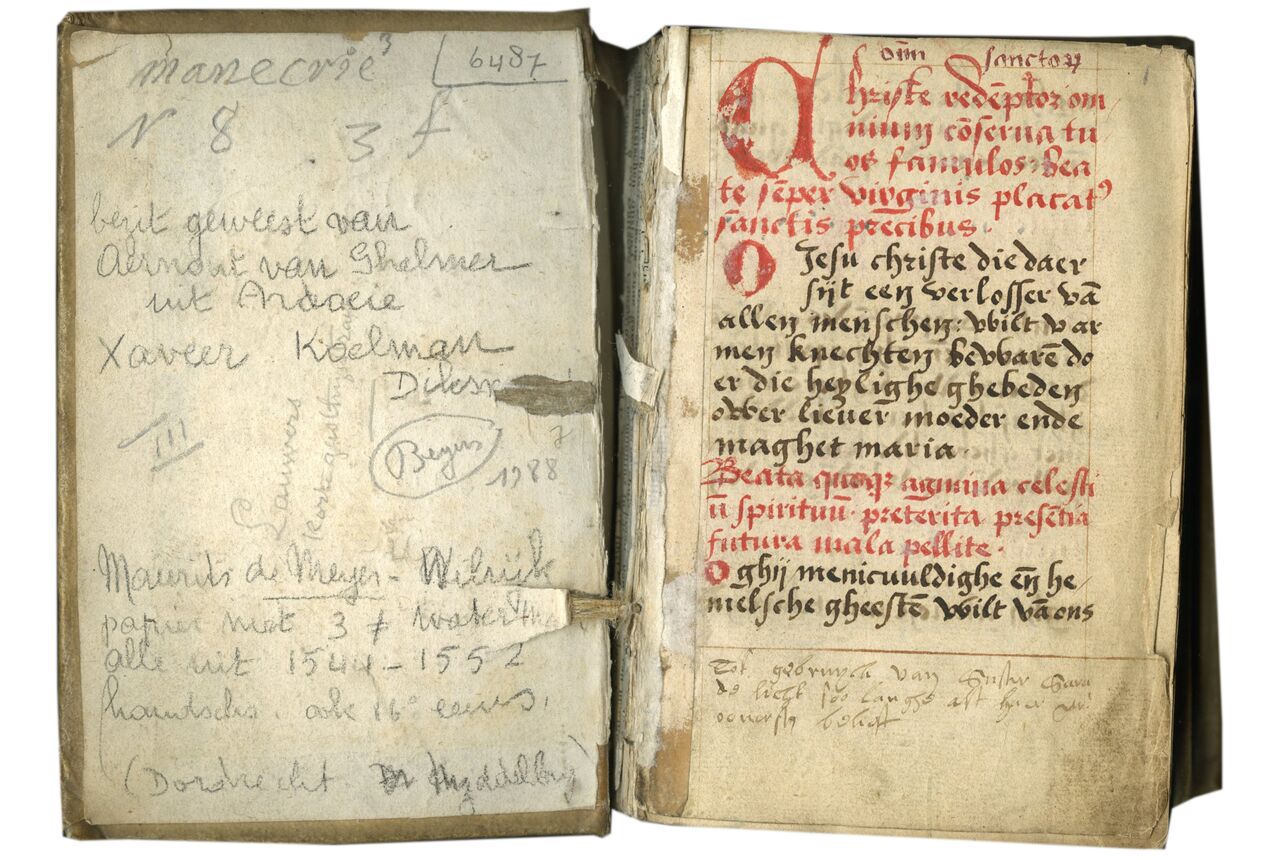 manecrie 3
6487
N 8 3 f
bezit geweest van
Aernout van Ghelmer
uit
Xaveer Koelman
III
Lauwers
Beyers
1988
Maurits de Meyer - Wilrijk
papier met 3 ≠ water
alle uit 1544 - 1552
handschr. ook 16e eeuws.
(Dordrecht Middelburg)
om̄ sanctoꝝ
1
Christe redēptor om
nium cōserua tu
os famulos bea
te sēper virginis placatꝰ
sanctis precibus.
O Jesu christe die daer
sijt een verlosser vā
allen menschen: wilt v ar
men knechten bewarē do
er die heylighe ghebeden
ower lieuer moeder ende
maghet maria.
Beata quoqꝫ agmina celesti
ū spirituū. preterita presētia
futura mala pellite.
O ghij menicuuldighe eñ he
melsche gheestē wilt vā ons
Tot gebruyck van Suster
de licht soo langhe als haer
belieft